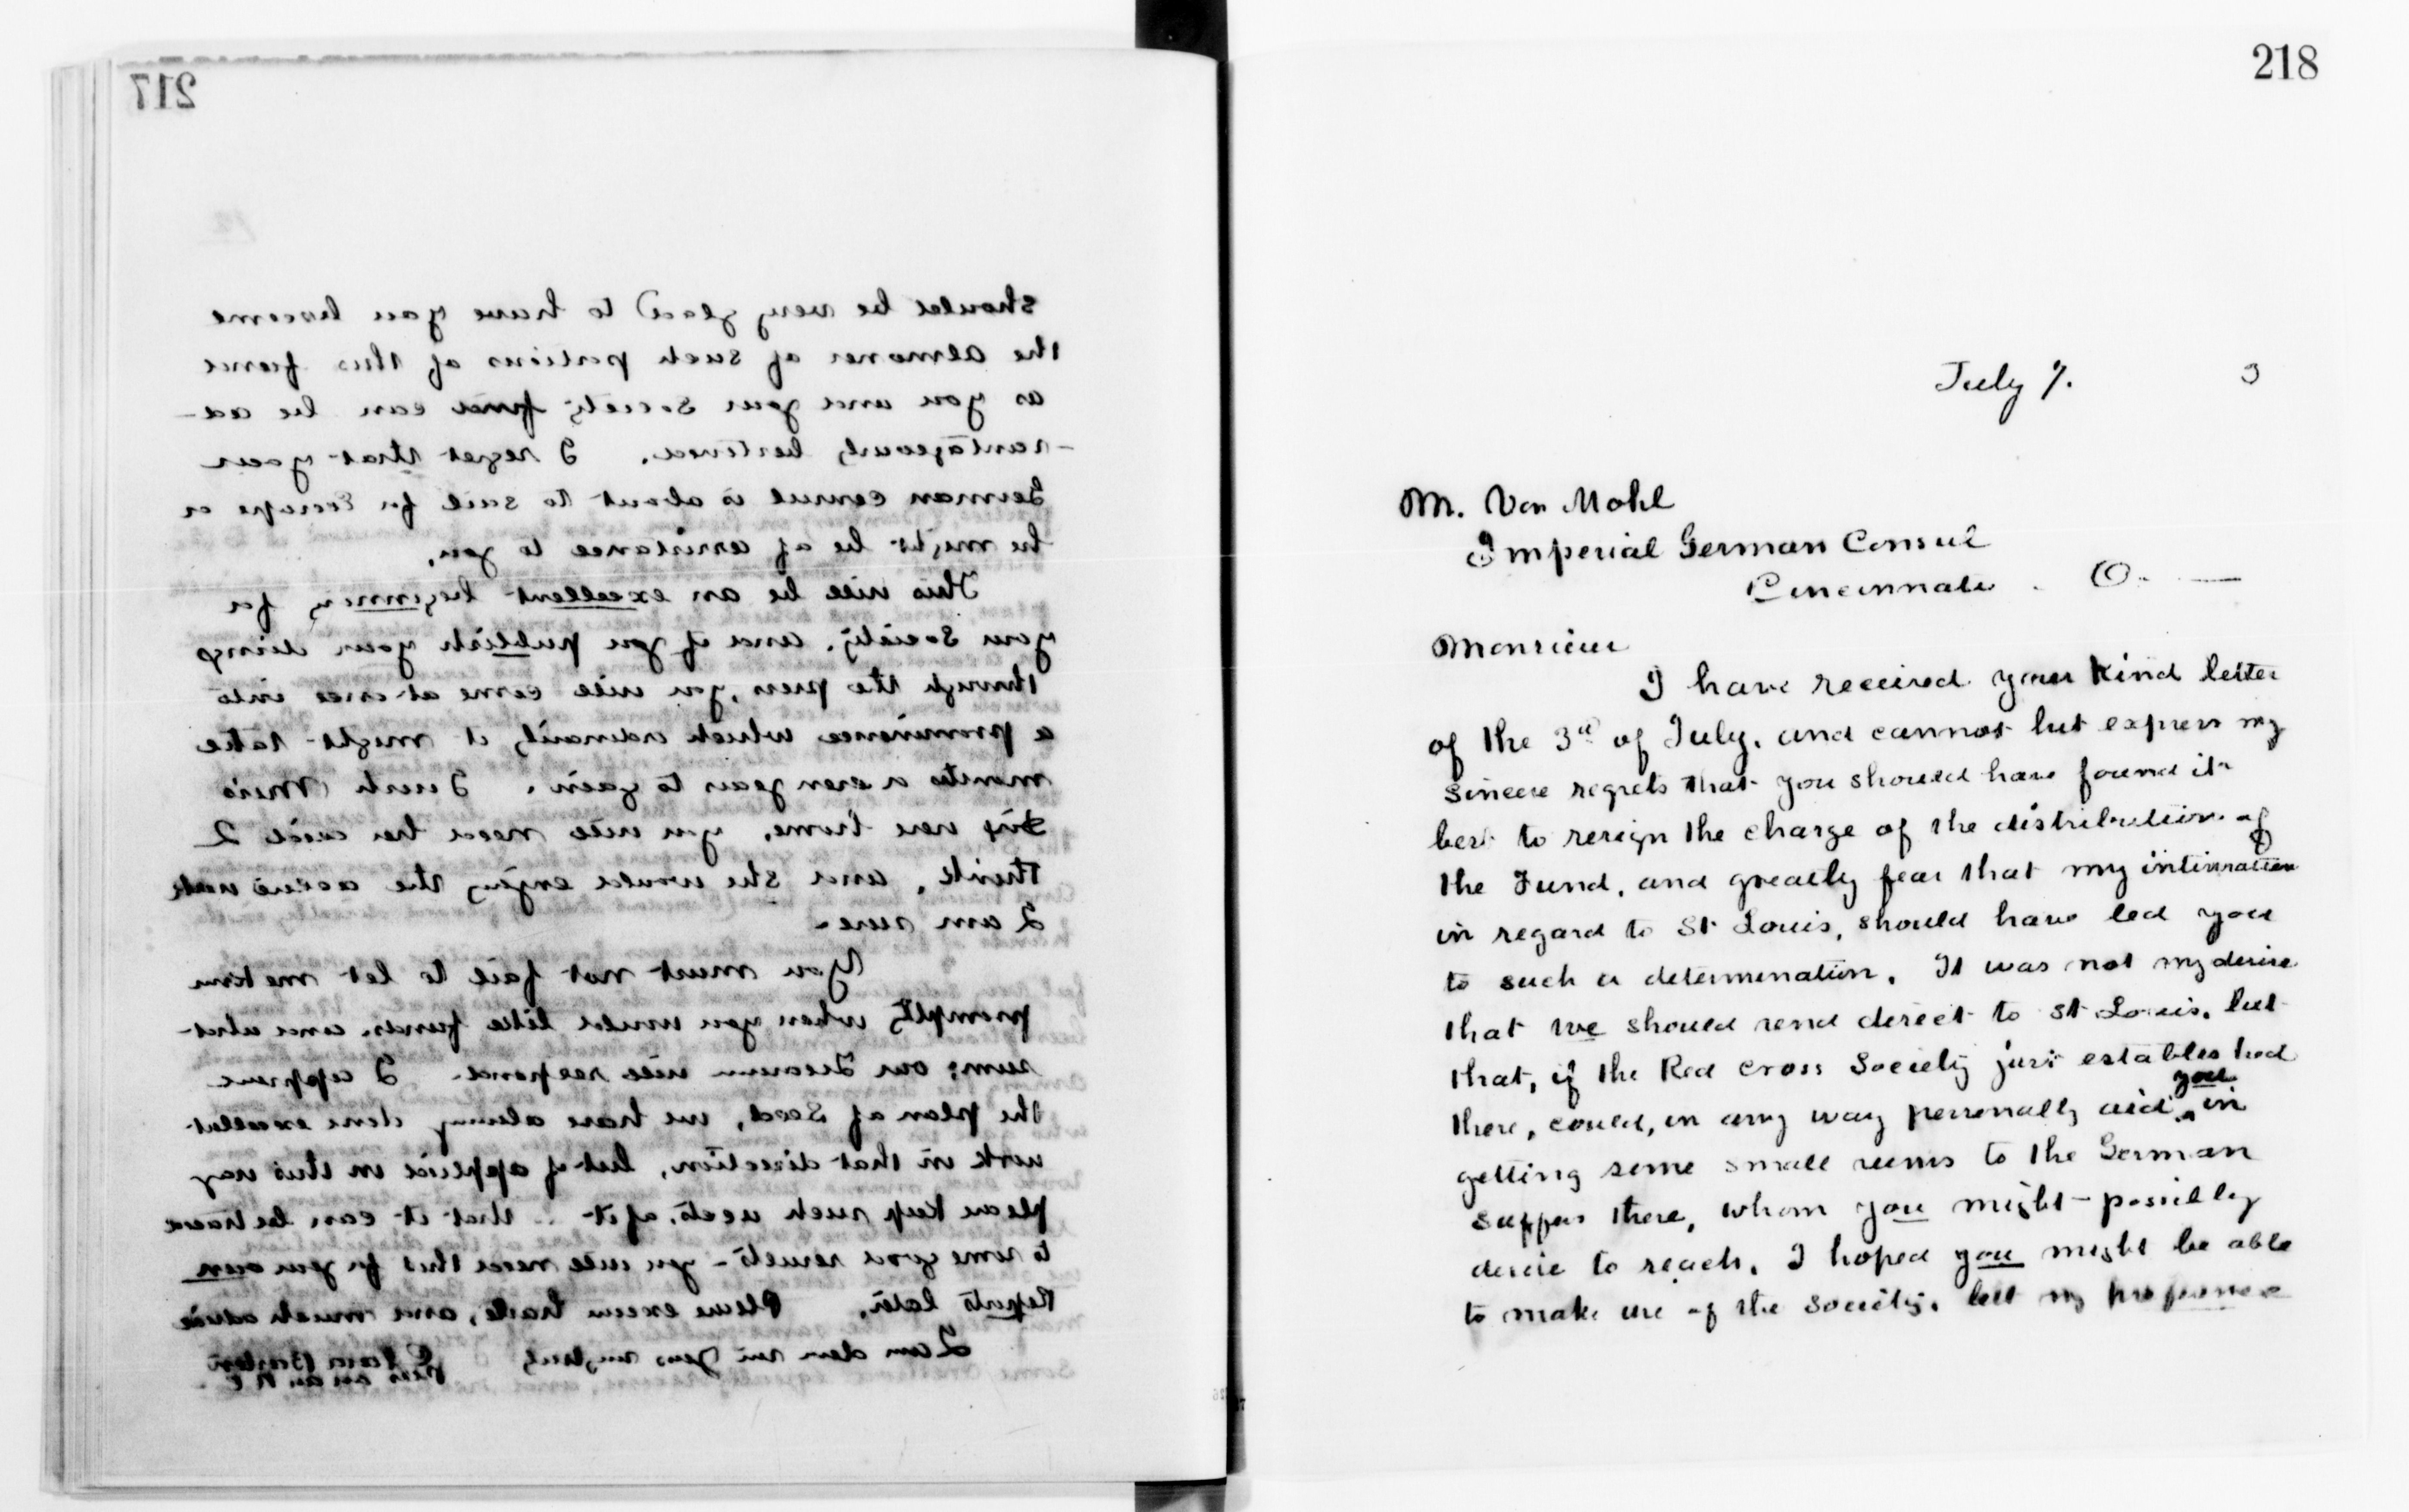 217
12
should be very glad to have you become
the almoner of such portions of this fund
as you and your society find can be ad-
-vantageously bestowed. I regret that your
German consul is about to sail for Europe or
he might be of assistance to you.
This will be an excellent beginning for
your society, and if you publish your doings
through the press, you will come at once into
a prominence which ordinarily it might take
months or even years to gain. I wish Miss
were home, you will need her aid I
think, and she would enjoy the active work
I am sure.
You must not fail to let me know
promptly when you would like funds, and what
sum; our Treasurer will respond. I approve
the plan of Seed, we have already done excellent
work in that direction, but if applied in this way
please keep such accts. of it that it can be traced
to some good results - you will need this for your own
Reports later. Please excuse haste, and much advice
I am dear sir Yours very truly Clara Barton
Pres an Ass R C
218
July 7. 3
M. Von Mohl
Imperial German Consul
Cincinnati. O. —
Monsieur
I have received your kind letter
of the 3d of July, and cannot but express my
sincere regrets that you should have found it
best to resign the charge of the distribution of
the Fund, and greatly fear that my intimation
in regard to St Louis, should have led you
to such a determination. It was not my desire
that we should send direct to St Louis, but
that, if the Red Cross Society just established
there, could, in any way personally aid you in
getting some small sums to the German
suffers there, whom you might possibly
desire to reach, I hoped you might be able
to make use of the Society, but my